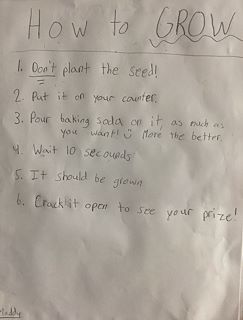 How to GROW
1. Don't plant the seed!
2. Put it on your counter.
3. Pour baking soda on it, as much as
you want! ☺ More the better.
4. Wait 10 secounds
5. It should be grown
6. Crackit open to see your prize!
Maddy